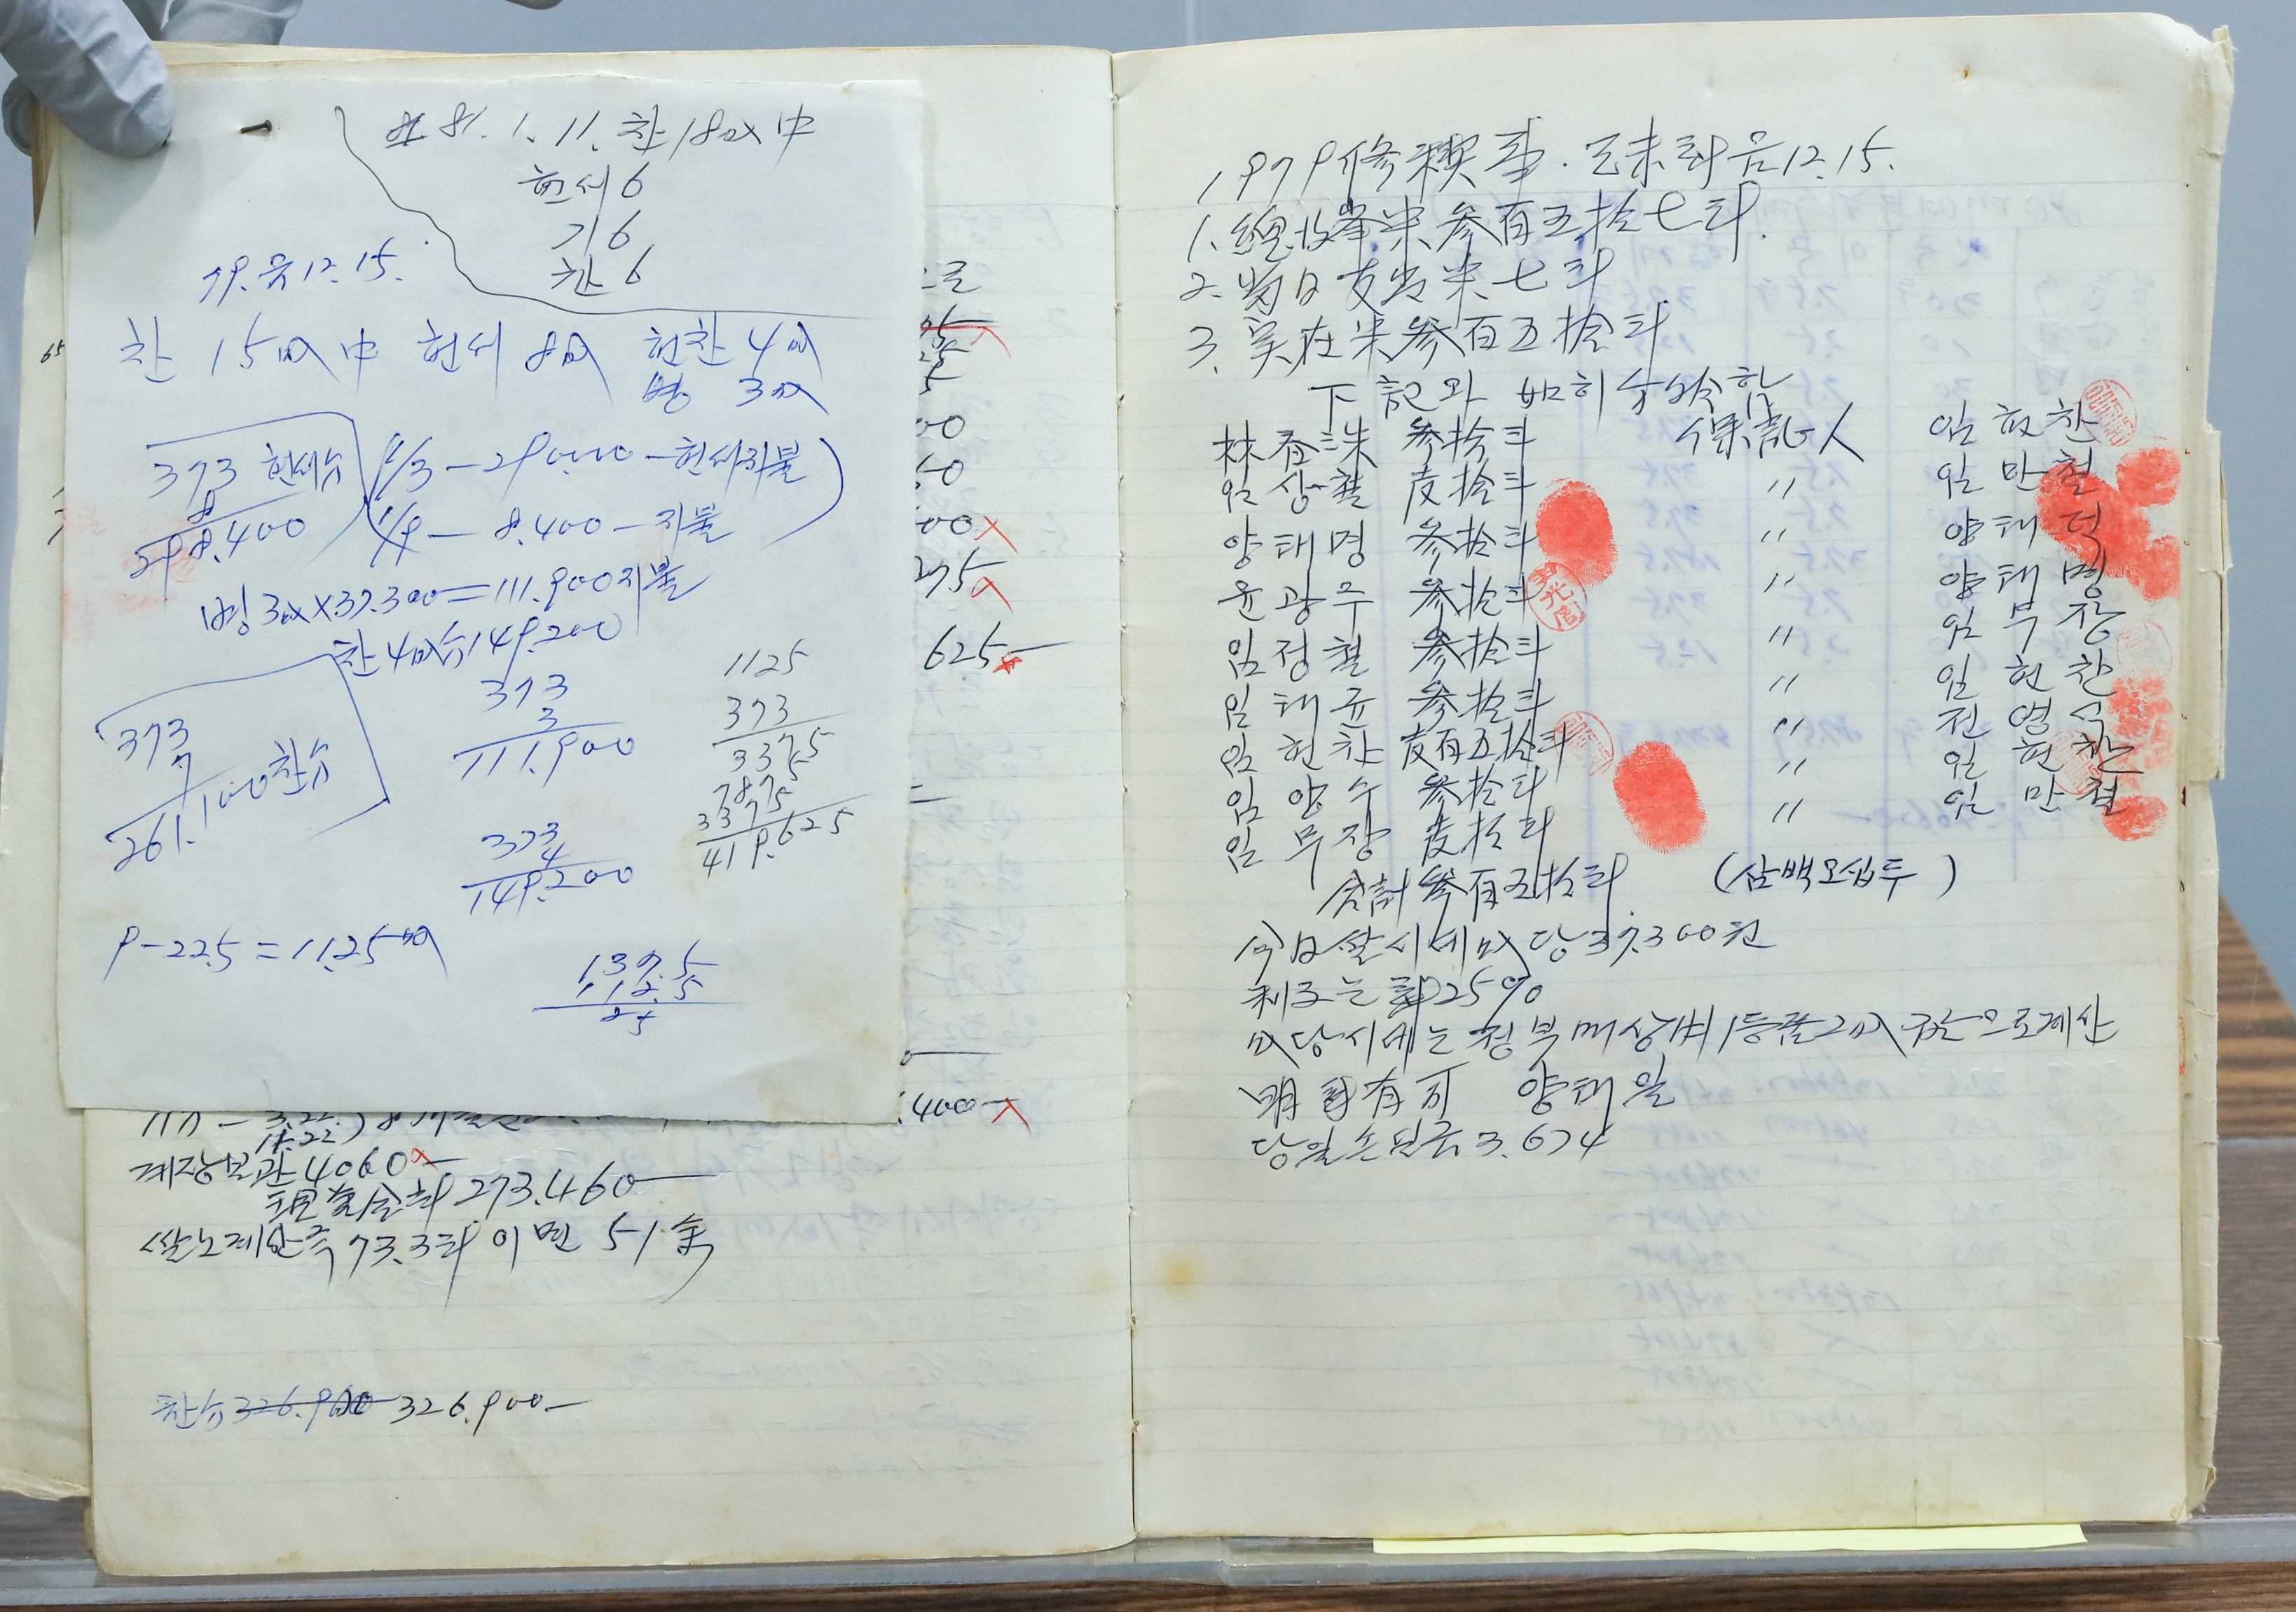 81.1.11. 찬 18叺 中
헌세 6
기 6
찬 6
79. 음 12.15.
찬 15叺 中 헌세 8叺 헌찬 4叺
병 3叺
373 헌세
8
298.400
1/3 — 290.000 — 헌세지불
1/9 — 8.400 — 지불
병 3叺 × 37.300 = 111.900 지불
찬 4叺 149.200
373
7
261.100 찬
373
3
111.900
373
4
149.200
1125
373
3375
7875
3375
419.625
9 — 22.5 = 11.25叺
137.5
112.5
25
275
625
400
계장보관 4060
現金 273.460
쌀로 계산 즉 73.3斗 이면 51 余
찬 326.900 326.900
1979 修稧事. 己未 음 12.15.
1. 總收米 參百五拾七斗.
2. 當日 支出米 七斗
3. 実在米 參百五拾斗
下記와 如히 分給함
林 春洙 參拾斗 保証人 임 헌 찬
임 상 철 貳拾斗 〃 임 만 철
양 태 명 參拾斗 〃 양 태 덕
윤 광 주 參拾斗 〃 양 태 명
임 정 철 參拾斗 〃 임 무 장
임 태 규 參拾斗 〃 임 헌 찬
임 헌 찬 壹百五拾斗 〃 전 영 석
임 양 수 參拾斗 〃 임 헌 찬
임 무 장 貳拾斗 〃 임 만 철
合計 參百五拾斗. (삼백오십두)
今日 쌀시세 叺당 37.300원
利子는 25%
叺당시세는 정부매상벼 1등품 2叺 금으로계산
明 有司 양태일
당일손님 3.674